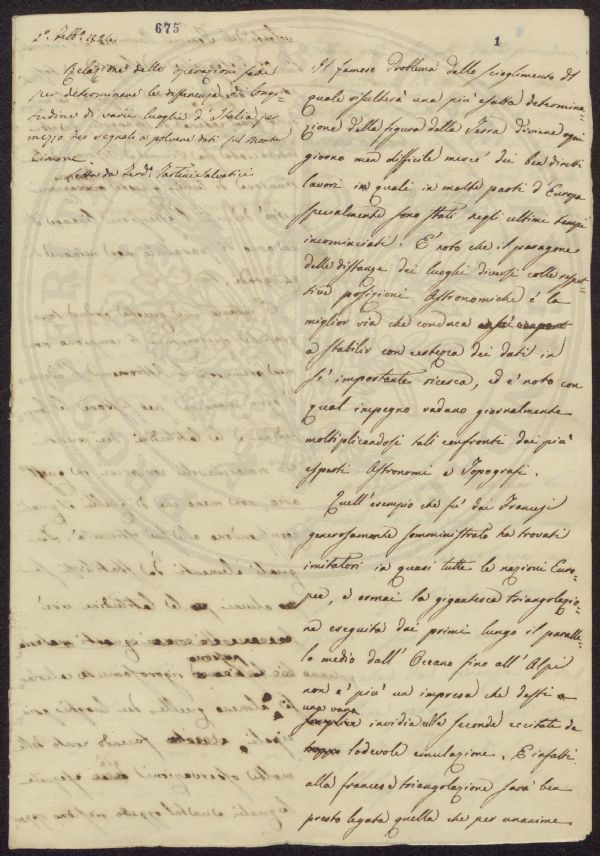 675
1
2°. Febb.° 1826
Relazione delle operazioni fatte
per determinare le differenze di long-
itudine di varii luoghi d'Italia per
mezzo dei segnali a polvere dati sul Monte
Cimone
Letta da Ferd.° Tartini Salvatici
Il famoso Problema dallo scioglimento del
quale risulterà una più esatta determina-
zione della figura della Terra diviene ogni
giorno men difficile mercé dei ben diretti
lavori in quali in molte parti d'Europa
specialmente sono stati negli ultimi tempi
incominciati. È noto che il paragone
delle distanze dei luoghi diversi colle rispet-
tive posizioni Astronomiche è la
miglior via che conduca
a stabilir con certezza dei dati in
sì importante ricerca, ed è noto con
qual impegno vadano giornalmente
moltiplicandosi tali confronti dai più
esperti Astronomi e Topografi.
Quell'esempio che fu dai Francesi
generosamente somministrato ha trovati
imitatori in quasi tutte le nazioni Euro-
pee, e ormai la gigantesca triangolazio-
ne eseguita dai primi lungo il paralle-
lo medio dall'Oceano fino all'Alpi
non è più un impresa che desti
una vana
invidia alle seconde eccitate da
lodevole emulazione. E infatti
alla francese triangolazione sarà ben
presto legata quella che per unanime